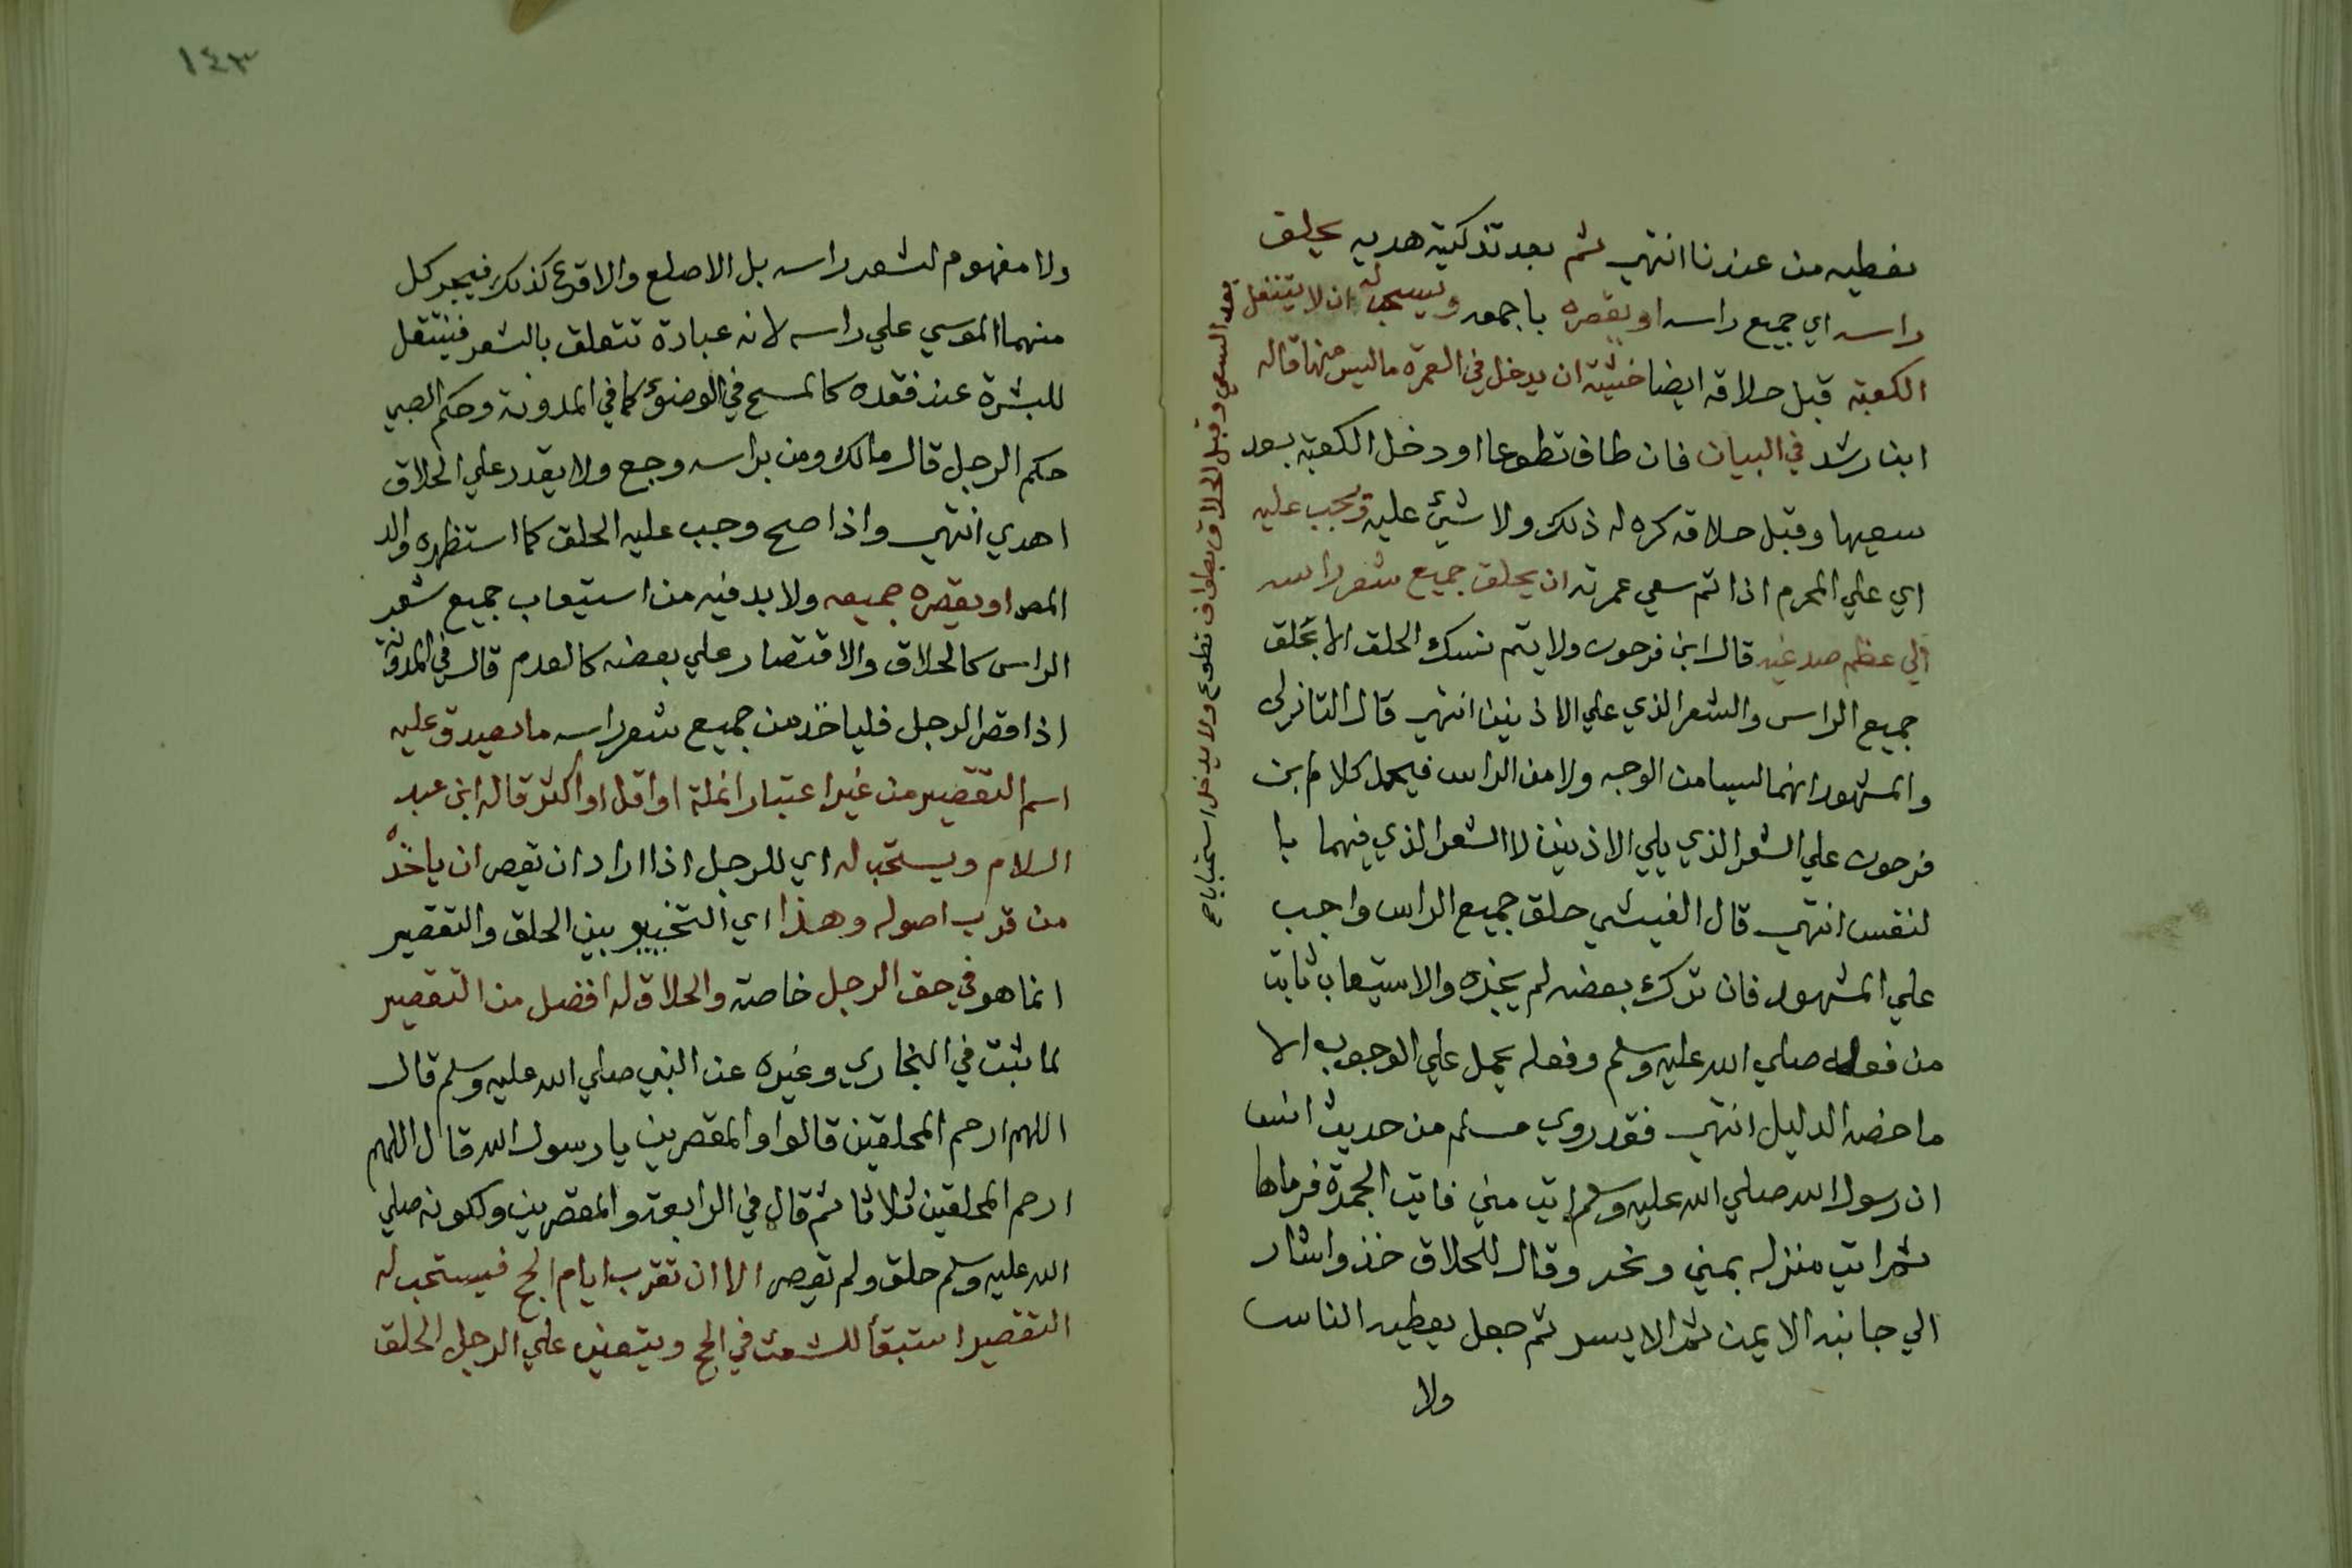 نعطيه من عندنا انتهي ثم بعد تذكية هديه يحلق
راسه اي جميع راسه او يقصره باجمعه ويستحب له ان لا يتنفل
بعد السعي وقبل الحلاق بطواف تطوع ولا يدخل استحبابا صح
الكعبة قبل حلاقه ايضا خشية ان يدخل في العمرة ما ليس منها قاله
ابن رشد في البيان فان طاف تطوعا او دخل الكعبة بعد
سعيها وقبل حلاقه كره له ذلك ولا شيئ عليه ويجب عليه
اي علي المحرم اذا تم سعي عمرته ان يحلق جميع شعر راسه
الي عظم صدغيه قال ابن فرحون ولا يتم نسك الحلق الا بحلق
جميع الراس والشعر الذي علي الاذنين انتهي قال التادلي
والمشهور انهما ليسا من الوجه ولا من الراس فيحمل كلام بن
فرحون علي الشعر الذي يلي الاذنين لا الشعر الذي فيهما با
لنفس انتهي قال الفيشي حلق جميع الراس واجب
علي المشهور فان ترك بعضه لم يجزه والاستيعاب ثابت
من فعله صلي الله عليه وسلم وفعله يحمل علي الوجوب الا
ما خصه الدليل انتهي فقد روي مسلم من حديث انس
ان رسول الله صلي الله عليه وسلم اتي مني فاتي الجمرة فرماها
ثم اتي منزله بمني ونحر وقال للحلاق خذ واشار
الي جانبه الايمن ثم الايسر ثم جعل يعطيه الناس
ولا
١٤٣
ولا مفهوم لشعر راسه بل الاصلع والاقرع كذلك فيجر كل
منهما الموسي علي راسه لانه عبادة تتعلق بالشعر فينتقل
للبشرة عند فقده كالمسح في الوضوء كما في المدونة وحكم الصبي
حكم الرجل قال مالك ومن براسه وجع ولا يقدر علي الحلاق
اهدي انتهي واذا صح وجب عليه الحلق كما استظهره والد
المص او يقصره جميعه ولا بد فيه من استيعاب جميع شعر
الراس كالحلاق والاقتصار علي بعضه كالعدم قال في المدونة
اذا قصر الرجل فلياخذ من جميع شعر راسه ما يصدق عليه
اسم التقصير من غير اعتبار انملة او اقل او اكثر قاله ابن عبد
السلام ويستحب له اي للرجل اذا اراد ان يقصر ان ياخذه
من قرب اصوله وهذا اي التخيير بين الحلق والتقصير
انما هو في حق الرجل خاصة والحلاق له افضل من التقصير
لما ثبت في البخاري وغيره عن النبي صلي الله عليه وسلم قال
اللهم ارحم المحلقين قالوا والمقصرين يا رسول الله قال اللهم
ارحم المحلقين ثلاثا ثم قال في الرابعة والمقصرين ولكونه صلي
الله عليه وسلم حلق ولم يقصر الا ان تقرب ايام الحج فيستحب له
التقصير استبقأ للشعث في الحج ويتعين علي الرجل الحلق